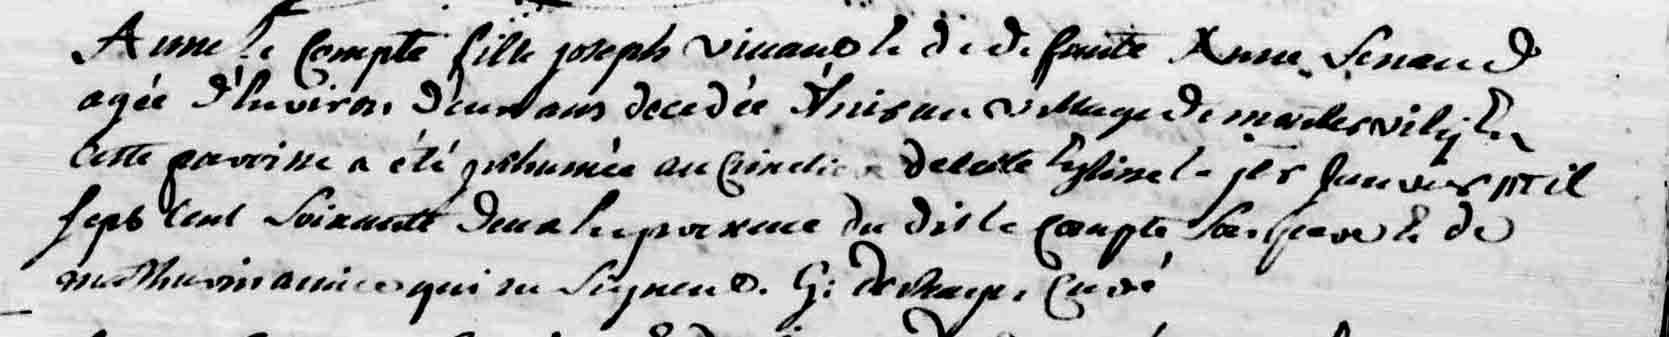 Anne le Compte fille joseph vivano & de defunte Anne Senaud
agée d'Environ deux ans decedée hier au village de
Cette paroisse a été inhumée au Cimetiere de cette Eglise le Janvier mil
sept Cent Soixante deux En presence du dit le Compte Son pere & de
mathurin amice qui ne Signent. G: Curé